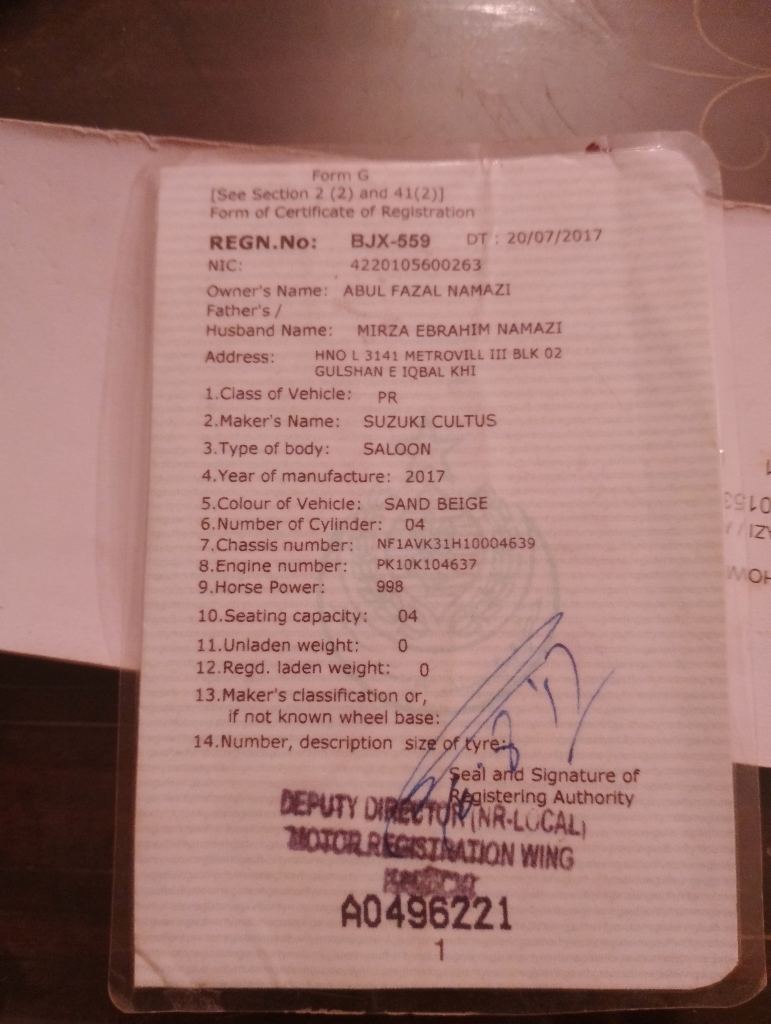 Form G
[See Section 2 (2) and 41(2)]
Form of Certificate of Registration
REGN.No: BJX-559 DT : 20/07/2017
NIC: 4220105600263
Owner's Name: ABUL FAZAL NAMAZI
Father's /
Husband Name: MIRZA EBRAHIM NAMAZI
Address: HNO L 3141 METROVILL III BLK 02
GULSHAN E IQBAL KHI
1.Class of Vehicle: PR
2.Maker's Name: SUZUKI CULTUS
3.Type of body: SALOON
4.Year of manufacture: 2017
5.Colour of Vehicle: SAND BEIGE
6.Number of Cylinder: 04
7.Chassis number: NF1AVK31H10004639
8.Engine number: PK10K104637
9.Horse Power: 998
10.Seating capacity: 04
11.Unladen weight: 0
12.Regd. laden weight: 0
13.Maker's classification or,
if not known wheel base:
14.Number, description size of tyre:
Seal and Signature of
Registering Authority
DEPUTY DIRECTOR (NR-LOCAL)
MOTOR REGISTRATION WING
KARACHI
A0496221
1